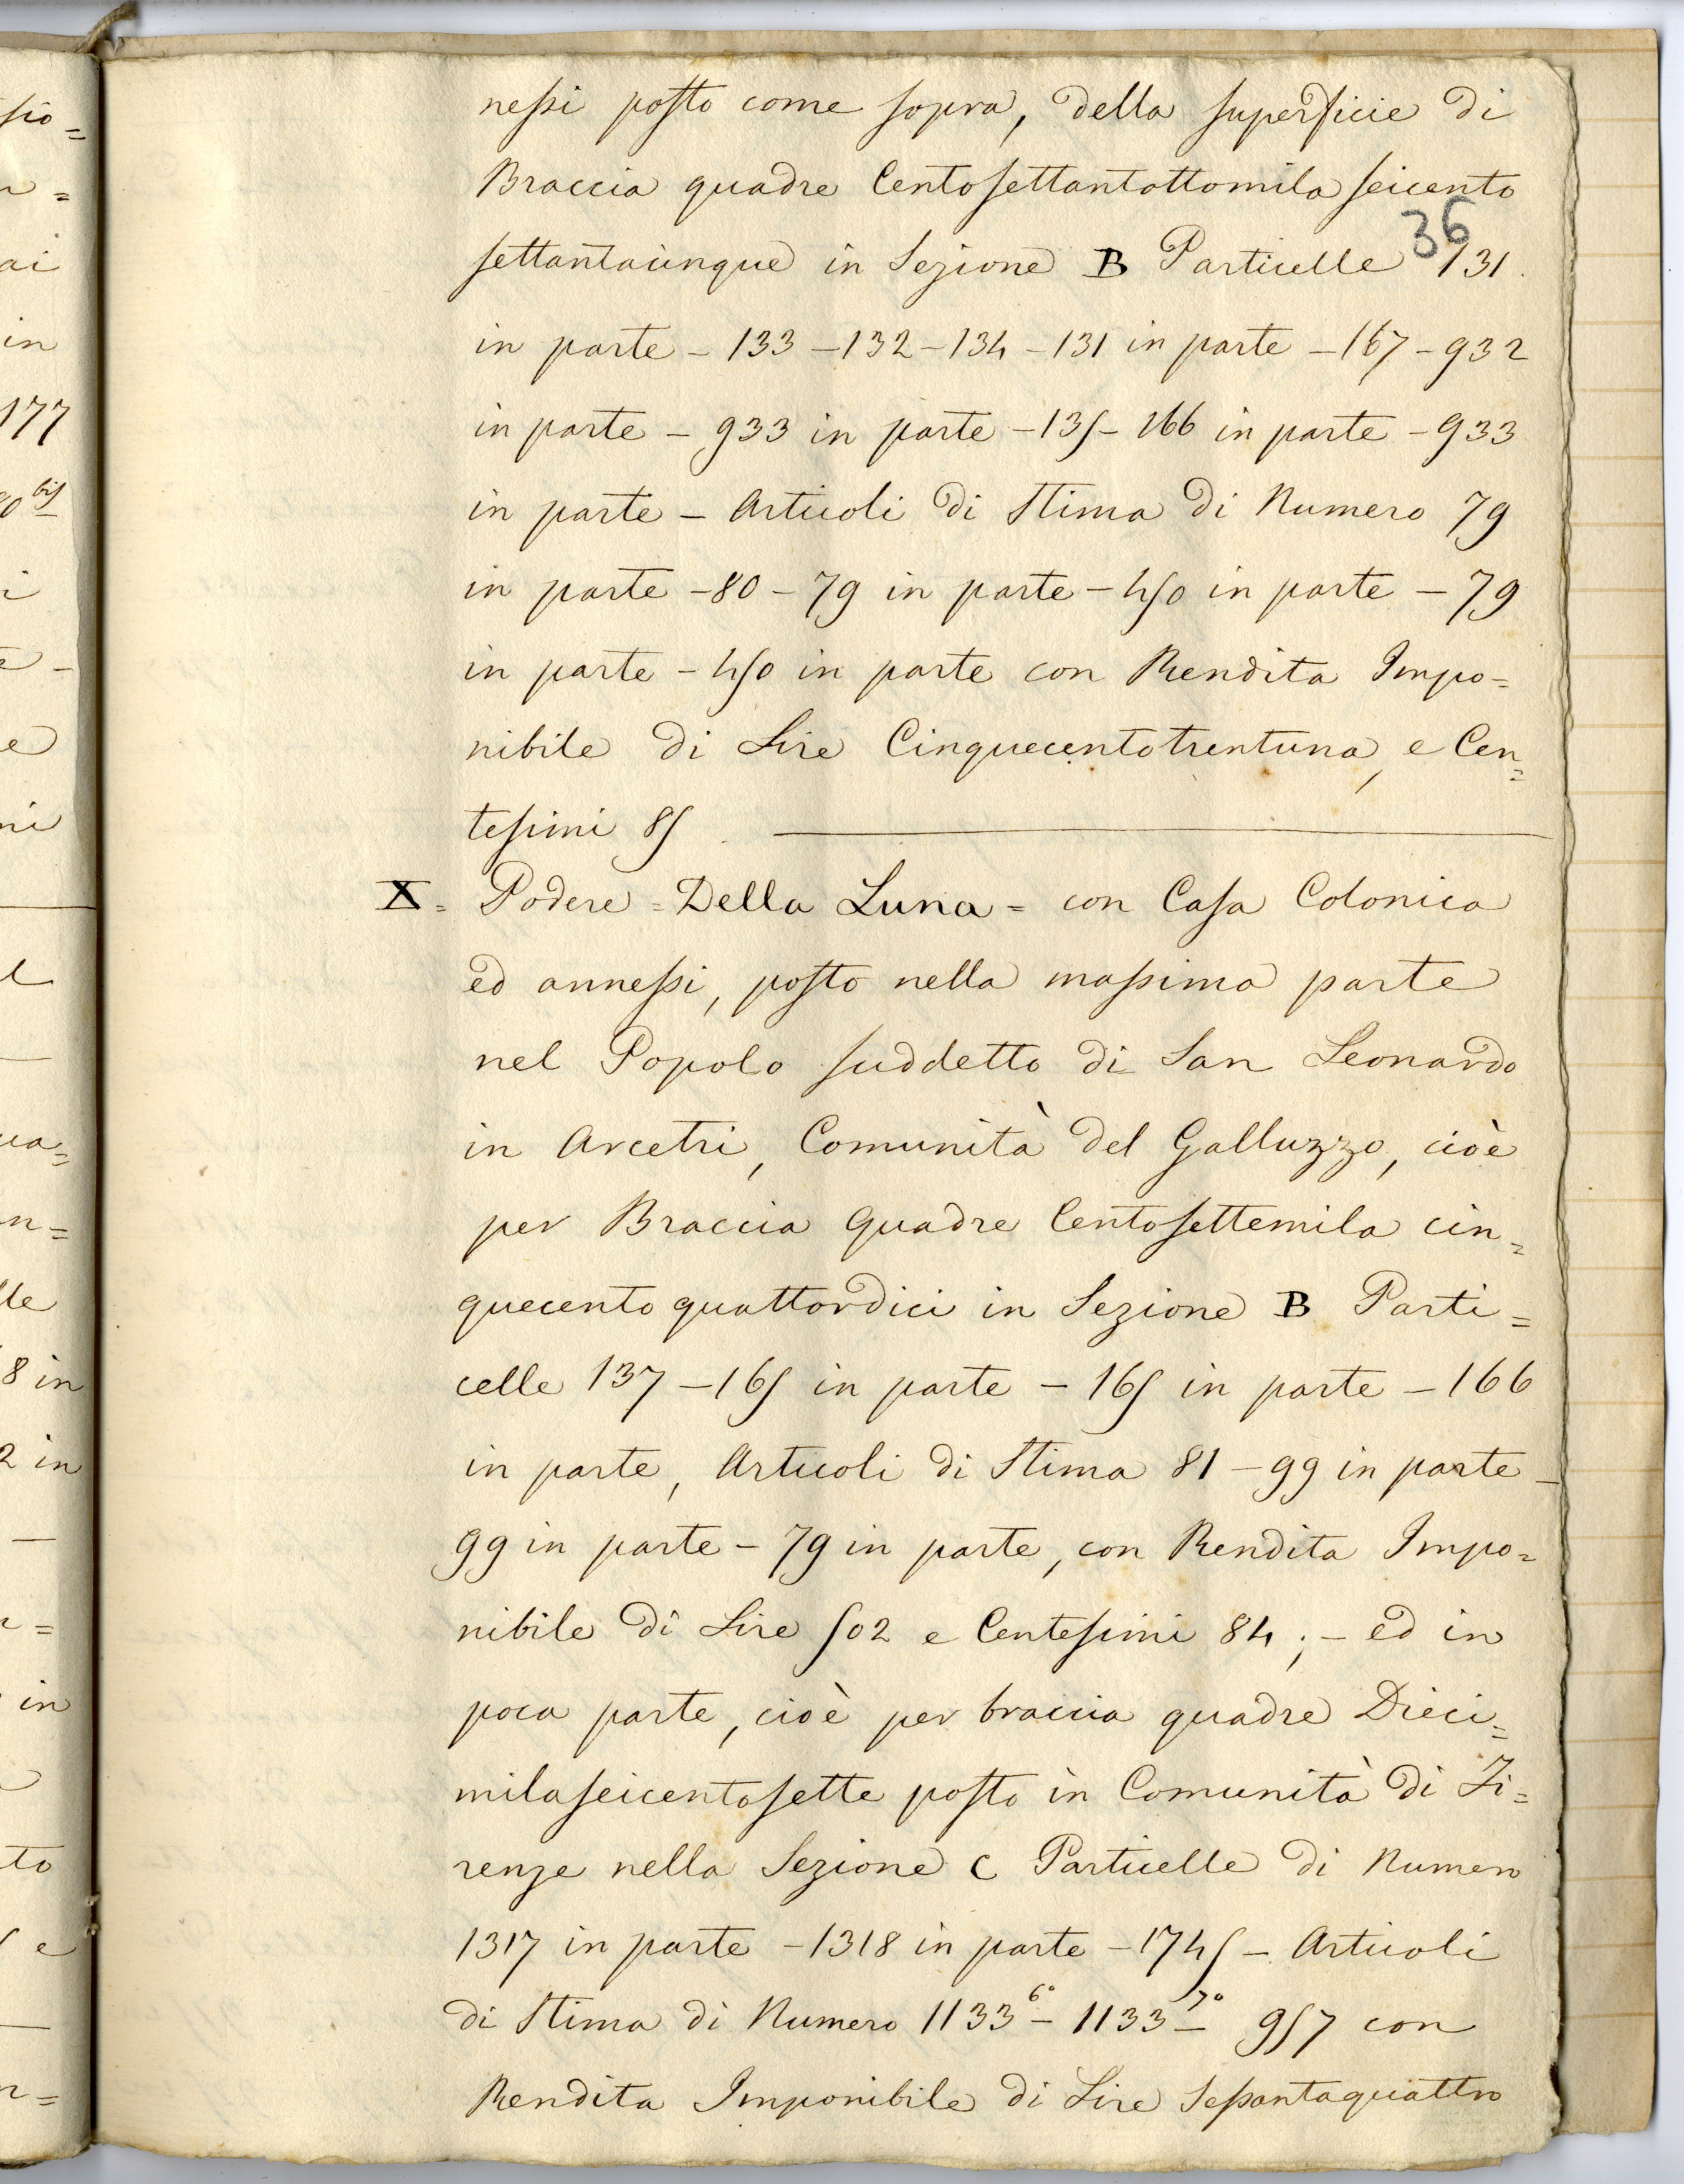 nessi posto come sopra, della superficie di
Braccia quadre Centosettantottomila seicento
36
settantacinque in Sezione B Particelle 131.
in parte - 133 - 132 - 134 - 131 in parte - 167 - 932
in parte - 933 in parte - 135 - 166 in parte - 933
in parte - Articoli di Stima di Numero 79
in parte - 80 - 79 in parte - 450 in parte - 79
in parte - 450 in parte con Rendita Impo=
nibile di Lire Cinquecentotrentuna, e Cen=
tesimi 85
X = Podere = Della Luna = con Casa Colonica
ed annessi, posto nella massima parte
nel Popolo suddetto di San Leonardo
in Arcetri, Comunità del Galluzzo, cioè
per Braccia Quadre Centosettemila cin=
quecento quattordici in Sezione B Parti=
celle 137 - 165 in parte - 165 in parte - 166
in parte, Articoli di Stima 81 - 99 in parte -
99 in parte - 79 in parte, con Rendita Impo=
nibile di Lire 502 e Centesimi 84; - ed in
poca parte, cioè per braccia quadre Dieci=
milaseicentosette posto in Comunità di Fi=
renze nella Sezione C Particelle di Numero
1317 in parte - 1318 in parte - 1745 - Articoli
di Stima di Numero 1133 6° - 1133 7° - 957 con
Rendita Imponibile di Lire Sessantaquattro